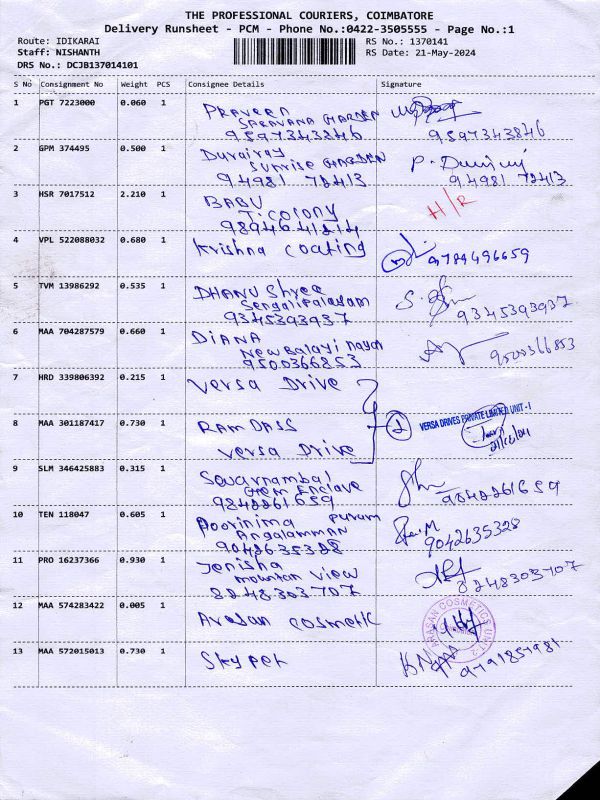 THE PROFESSIONAL COURIERS, COIMBATORE
Delivery Runsheet - PCM - Phone No.:0422-3505555 - Page No.:1
Route: IDIKARAI
RS No.: 1370141
Staff: NISHANTH
RS Date: 21-May-2024
DRS No.: DCJB137014101
S No Consignment No Weight PCS Consignee Details Signature
1 PGT 7223000 0.060 1 PRAVEEN
SARAVANA GARDEN
9597343846 9597343846
2 GPM 374495 0.500 1 Durairaj
Sunrise GARDEN
94981 72413 94981 72413
3 HSR 7017512 2.210 1 BABU H/R
TI colony
9894641214
4 VPL 522088032 0.680 1 Krishna coating 9789496659
5 TVM 13986292 0.535 1 DHANU Shree
Sengalipalayam
9345393937 9345393937
6 MAA 704287579 0.660 1 DIANA
New Balaji nagar
9500366853 9500366853
7 HRD 339806392 0.215 1 Versa Drive
8 MAA 301187417 0.730 1 RAMDASS 2 VERSA DRIVES PRIVATE LIMITED UNIT - I
Versa Drive
9 SLM 346425883 0.315 1 Sovarnambal
Gem Enclave
9840261659 9840261659
10 TEN 118047 0.605 1 Poorinima
Angalamman Puram
9042635328 9042635328
11 PRO 16237366 0.930 1 Jenisha
mountan view
8248303707 8248303707
12 MAA 574283422 0.005 1 Arasan cosmetic ARASAN COSMETICS UNIT-2
13 MAA 572015013 0.730 1 Skypek 9791857981